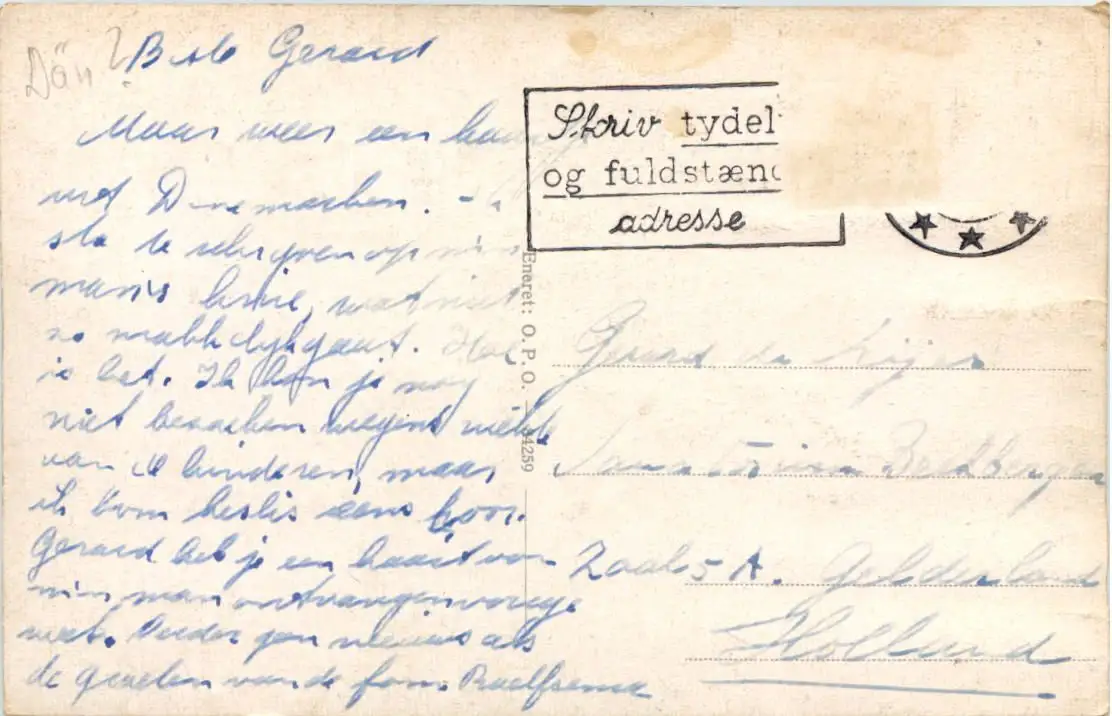 Dän?
Beste Gerard
Maar weer een kaart
uit Denemarken. -
sta te schrijven op mijn
mans knie, wat niet
zo makkelijk gaat. Hoe
is het. Ik kan je nog
niet bezoeken wegens ziekte
van de kinderen, maar
ik kom beslis eens hoor.
Gerard heb je een kaart van
mijn man ontvangen vorige
week. Verder geen nieuws als
de groeten van de fam. Roelfsema
Skriv tydel
og fuldstænd
adresse
Eneret: O. P. O. 84259
Gerard de
Sanatorium
Zaal 5 A. Gelderland
Holland